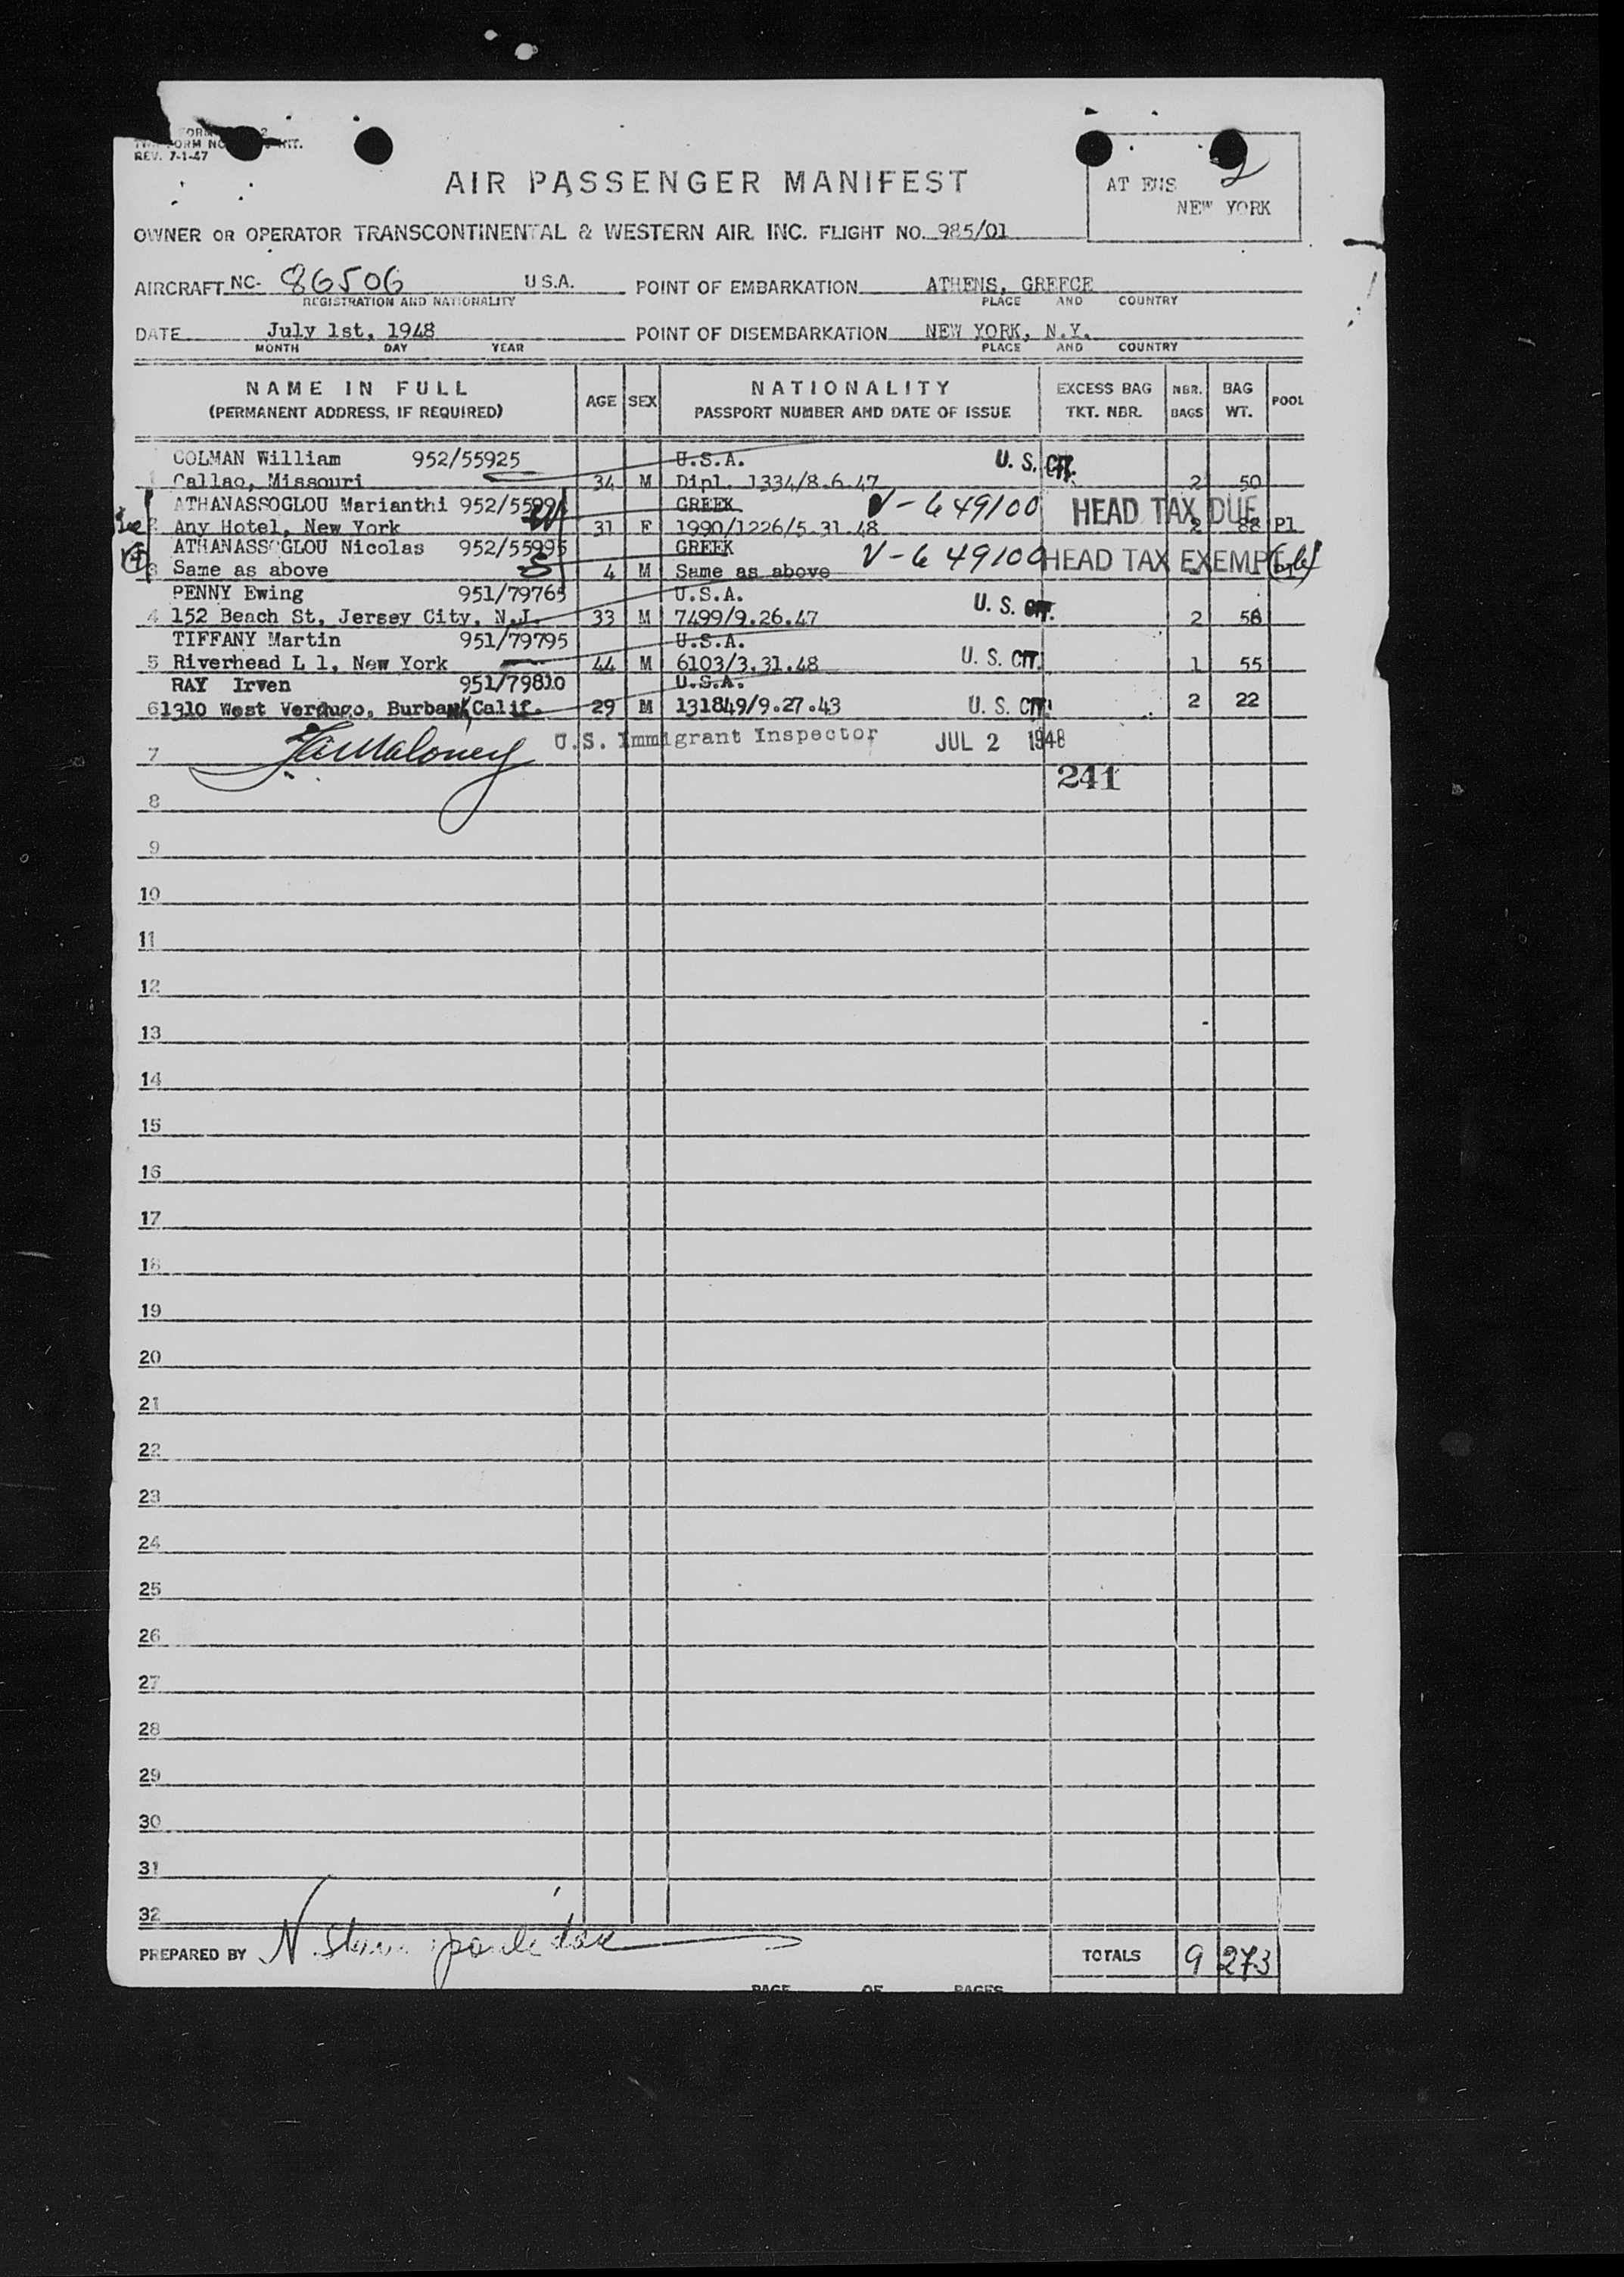 REV. 7-1-47
2
AIR PASSENGER MANIFEST
AT ENS
NEW YORK
OWNER OR OPERATOR TRANSCONTINENTAL & WESTERN AIR, INC. FLIGHT NO. 985/01
AIRCRAFT NC- 86506 U S.A. POINT OF EMBARKATION ATHENS, GREECE
REGISTRATION AND NATIONALITY PLACE AND COUNTRY
DATE July 1st, 1948 POINT OF DISEMBARKATION NEW YORK, N.Y.
MONTH DAY YEAR PLACE AND COUNTRY
NAME IN FULL AGE SEX NATIONALITY EXCESS BAG NBR. BAG POOL
(PERMANENT ADDRESS, IF REQUIRED) PASSPORT NUMBER AND DATE OF ISSUE TKT. NBR. BAGS WT.
COLMAN William 952/55925 U.S.A. U. S. CIT.
1 Callao, Missouri 34 M Dipl. 1334/8.6.47 2 50
ATHANASSOGLOU Marianthi 952/5599 GREEK V-649100 HEAD TAX DUE
2 Any Hotel, New York 31 F 1990/1226/5.31.48 2 88 P1
ATHANASSOGLOU Nicolas 952/55995 GREEK V-649100 HEAD TAX EXEMPT
3 Same as above 4 M Same as above
PENNY Ewing 951/79765 U.S.A. U. S. CIT.
4 152 Beach St, Jersey City, N.J. 33 M 7499/9.26.47 2 58
TIFFANY Martin 951/79795 U.S.A.
5 Riverhead L 1, New York 44 M 6103/3.31.48 U. S. CIT. 1 55
RAY Irven 951/79810 U.S.A.
6 1310 West Verdugo, Burbank, Calif. 29 M 131849/9.27.43 U. S. CIT. 2 22
7 Maloney U.S. Immigrant Inspector JUL 2 1948
241
8
9
10
11
12
13
14
15
16
17
18
19
20
21
22
23
24
25
26
27
28
29
30
31
32
PREPARED BY TOTALS 9 273
PAGE OF PAGES